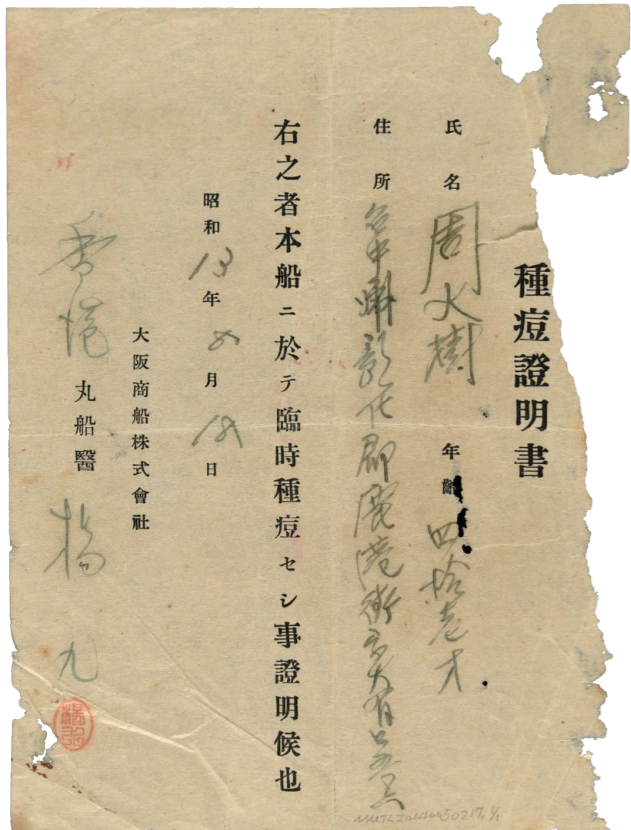 種痘證明書
氏名 周火樹 年齡 四拾壱才
住所 台中州彰化郡鹿港街字大有口
右之者本船ニ於テ臨時種痘セシ事證明候也
昭和13年8月18日
大阪商船株式會社
香港丸船醫 楊